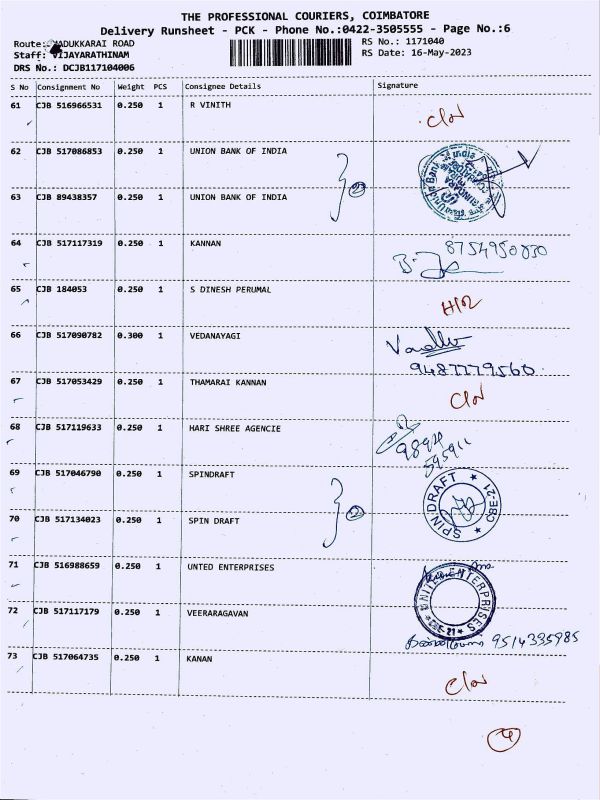 THE PROFESSIONAL COURIERS, COIMBATORE
Delivery Runsheet - PCK - Phone No.:0422-3505555 - Page No.:6
Route: MADUKKARAI ROAD RS No.: 1171040
Staff: VIJAYARATHINAM RS Date: 16-May-2023
DRS No.: DCJB117104006
S No Consignment No Weight PCS Consignee Details Signature
61 CJB 516966531 0.250 1 R VINITH
62 CJB 517086853 0.250 1 UNION BANK OF INDIA
63 CJB 89438357 0.250 1 UNION BANK OF INDIA
64 CJB 517117319 0.250 1 KANNAN 8754950830
65 CJB 184053 0.250 1 S DINESH PERUMAL
66 CJB 517090782 0.300 1 VEDANAYAGI
9487779560
67 CJB 517053429 0.250 1 THAMARAI KANNAN
68 CJB 517119633 0.250 1 HARI SHREE AGENCIE
69 CJB 517046790 0.250 1 SPINDRAFT
SPIN-DRAFT CBE-21
70 CJB 517134023 0.250 1 SPIN DRAFT
71 CJB 516988659 0.250 1 UNTED ENTERPRISES
UNITED ENTERPRISES
72 CJB 517117179 0.250 1 VEERARAGAVAN
9514335985
73 CJB 517064735 0.250 1 KANAN